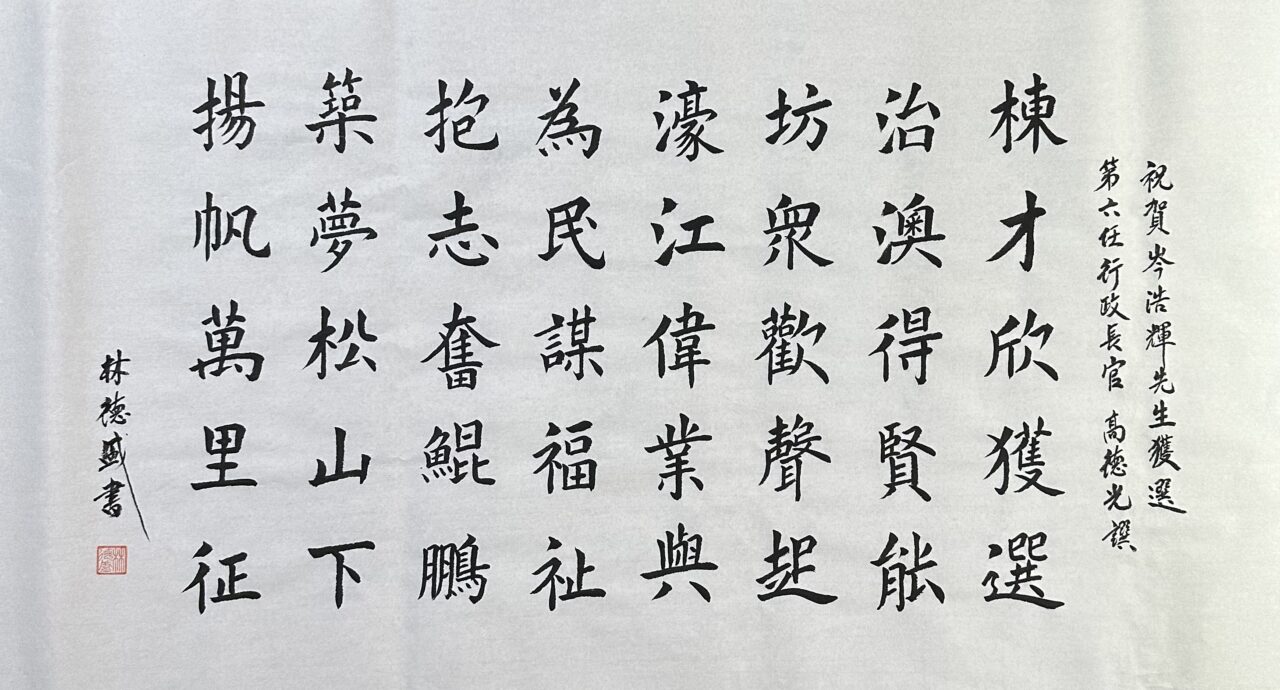 祝賀岑浩輝先生獲選
第六任行政長官 高德光譔
棟才欣獲選
治澳得賢能
坊衆歡聲起
濠江偉業興
為民謀福祉
抱志奮鯤鵬
築夢松山下
揚帆萬里征
林德盛書